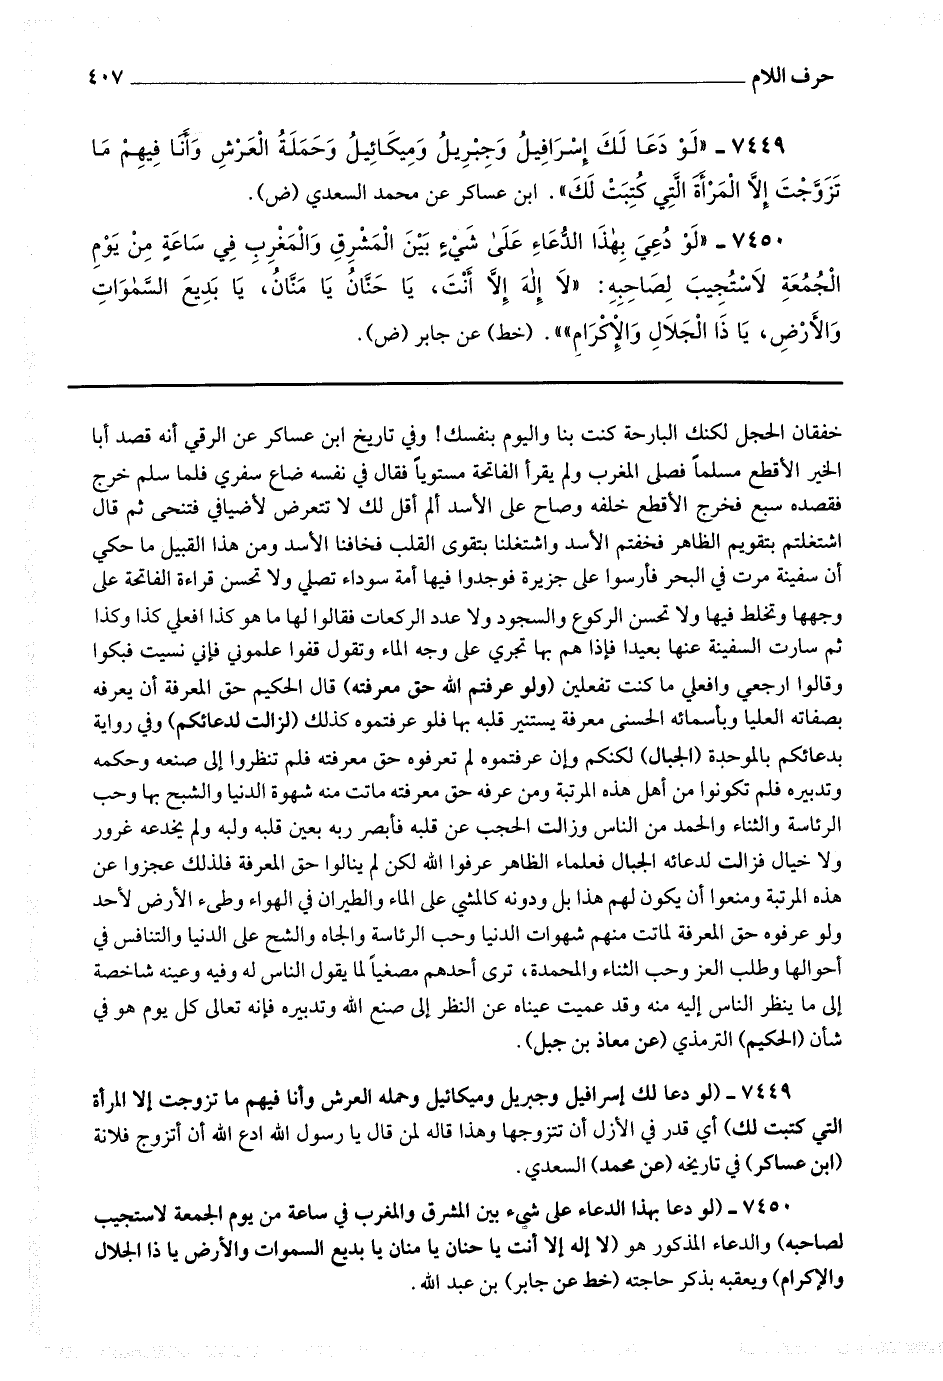 حرف اللام ٤٠٧
٧٤٤٩ - «لَوْ دَعَا لَكَ إِسْرَافِيلُ وَجِبْرِيلُ وَمِيكَائِيلُ وَحَمَلَةُ الْعَرْشِ وَأَنَا فِيهِمْ مَا
تَزَوَّجْتَ إِلَّا الْمَرْأَةَ الَّتِي كُتِبَتْ لَكَ». ابن عساكر عن محمد السعدي (ض).
٧٤٥٠ - «لَوْ دُعِيَ بِهٰذَا الدُّعَاءِ عَلَىٰ شَيْءٍ بَيْنَ الْمَشْرِقِ وَالْمَغْرِبِ فِي سَاعَةٍ مِنْ يَوْمِ
الْجُمُعَةِ لَاسْتُجِيبَ لِصَاحِبِهِ: «لَا إِلٰهَ إِلَّا أَنْتَ، يَا حَنَّانُ يَا مَنَّانُ، يَا بَدِيعَ السَّمٰوَاتِ
وَالْأَرْضِ، يَا ذَا الْجَلَالِ وَالْإِكْرَامِ»». (خط) عن جابر (ض).
خفقان الحجل لكنك البارحة كنت بنا واليوم بنفسك! وفي تاريخ ابن عساكر عن الرقي أنه قصد أبا
الخير الأقطع مسلماً فصلى المغرب ولم يقرأ الفاتحة مستوياً فقال في نفسه ضاع سفري فلما سلم خرج
فقصده سبع فخرج الأقطع خلفه وصاح على الأسد ألم أقل لك لا تتعرض لأضيافي فتنحى ثم قال
اشتغلتم بتقويم الظاهر فخفتم الأسد واشتغلنا بتقوى القلب فخافنا الأسد ومن هذا القبيل ما حكي
أن سفينة مرت في البحر فأرسوا على جزيرة فوجدوا فيها أمة سوداء تصلي ولا تحسن قراءة الفاتحة على
وجهها وتخلط فيها ولا تحسن الركوع والسجود ولا عدد الركعات فقالوا لها ما هو كذا افعلي كذا وكذا
ثم سارت السفينة عنها بعيدا فإذا هم بها تجري على وجه الماء وتقول قفوا علموني فإني نسيت فبكوا
وقالوا ارجعي وافعلي ما كنت تفعلين (ولو عرفتم الله حق معرفته) قال الحكيم حق المعرفة أن يعرفه
بصفاته العليا وبأسمائه الحسنى معرفة يستنير قلبه بها فلو عرفتموه كذلك (لزالت لدعائكم) وفي رواية
بدعائكم بالموحدة (الجبال) لكنكم وإن عرفتموه لم تعرفوه حق معرفته فلم تنظروا إلى صنعه وحكمه
وتدبيره فلم تكونوا من أهل هذه المرتبة ومن عرفه حق معرفته ماتت منه شهوة الدنيا والشبح بها وحب
الرئاسة والثناء والحمد من الناس وزالت الحجب عن قلبه فأبصر ربه بعين قلبه ولبه ولم يخدعه غرور
ولا خيال فزالت لدعائه الجبال فعلماء الظاهر عرفوا الله لكن لم ينالوا حق المعرفة فلذلك عجزوا عن
هذه المرتبة ومنعوا أن يكون لهم هذا بل ودونه كالمشي على الماء والطيران في الهواء وطيء الأرض لأحد
ولو عرفوه حق المعرفة لماتت منهم شهوات الدنيا وحب الرئاسة والجاه والشح على الدنيا والتنافس في
أحوالها وطلب العز وحب الثناء والمحمدة، ترى أحدهم مصغياً لما يقول الناس له وفيه وعينه شاخصة
إلى ما ينظر الناس إليه منه وقد عميت عيناه عن النظر إلى صنع الله وتدبيره فإنه تعالى كل يوم هو في
شأن (الحكيم) الترمذي (عن معاذ بن جبل).
٧٤٤٩ - (لو دعا لك إسرافيل وجبريل وميكائيل وحمله العرش وأنا فيهم ما تزوجت إلا المرأة
التي كتبت لك) أي قدر في الأزل أن تتزوجها وهذا قاله لمن قال يا رسول الله ادع الله أن أتزوج فلانة
(ابن عساكر) في تاريخه (عن محمد) السعدي.
٧٤٥٠ - (لو دعا بهذا الدعاء على شيء بين المشرق والمغرب في ساعة من يوم الجمعة لاستجيب
لصاحبه) والدعاء المذكور هو (لا إله إلا أنت يا حنان يا منان يا بديع السموات والأرض يا ذا الجلال
والإكرام) ويعقبه بذكر حاجته (خط عن جابر) بن عبد الله.